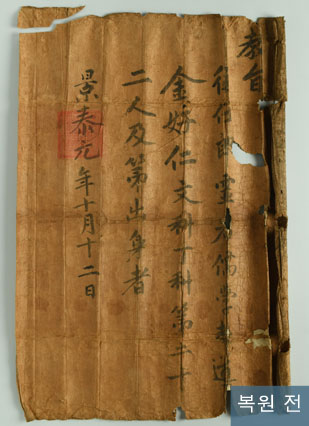 教旨
從仕郎靈光儒學教導
金好仁文科丁科第二十
二人及第出身者
景泰元年十月十二日
복원 전